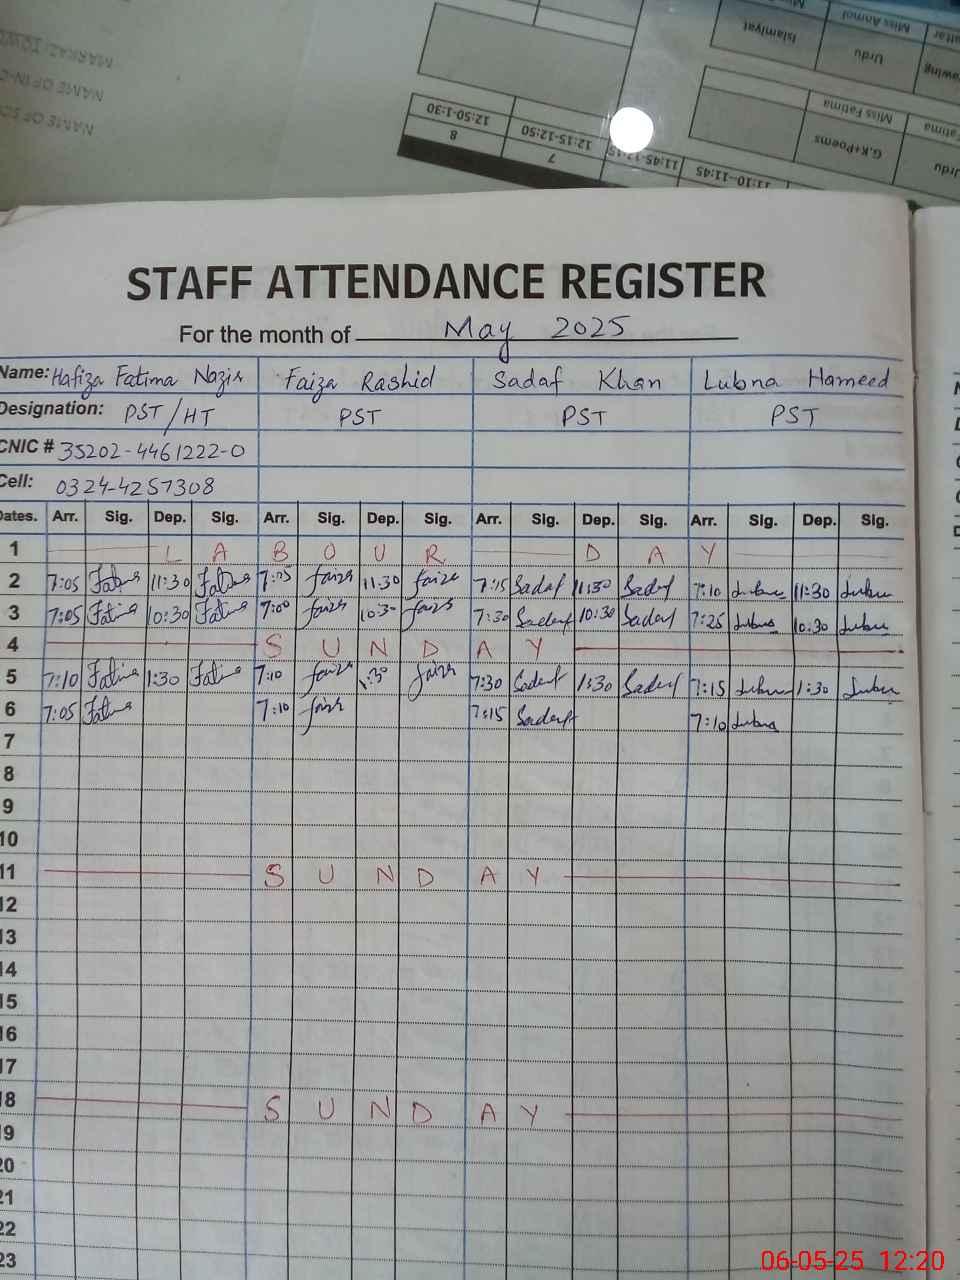 MARKAZ TOW
NAME OF IN-C
NAME OF SC
Miss Anmol
Islamiyat Urdu
Miss Fatima
G.K+Poems Urdu
12:50-1:30 12:15-12:50 11:45-12:15 11:10-11:45
8 7
STAFF ATTENDANCE REGISTER
For the month of May 2025
Name: Hafiza Fatima Nazir Faiza Rashid Sadaf Khan Lubna Hameed
Designation: PST/HT PST PST PST
CNIC # 35202-4461222-0
Cell: 0324-4257308
Dates. Arr. Sig. Dep. Sig. Arr. Sig. Dep. Sig. Arr. Sig. Dep. Sig. Arr. Sig. Dep. Sig.
1 L A B O U R D A Y
2 7:05 Fatima 11:30 Fatima 7:05 faiza 11:30 faiza 7:15 Sadaf 11:30 Sadaf 7:10 Lubna 11:30 Lubna
3 7:05 Fatima 10:30 Fatima 7:00 faiza 10:30 faiza 7:30 Sadaf 10:30 Sadaf 7:25 Lubna 10:30 Lubna
4 S U N D A Y
5 7:10 Fatima 1:30 Fatima 7:10 faiza 1:30 faiza 7:30 Sadaf 1:30 Sadaf 7:15 Lubna 1:30 Lubna
6 7:05 Fatima 7:10 faiza 7:15 Sadaf 7:10 Lubna
7
8
9
10
11 S U N D A Y
12
13
14
15
16
17
18 S U N D A Y
19
20
21
22
23
06-05-25 12:20